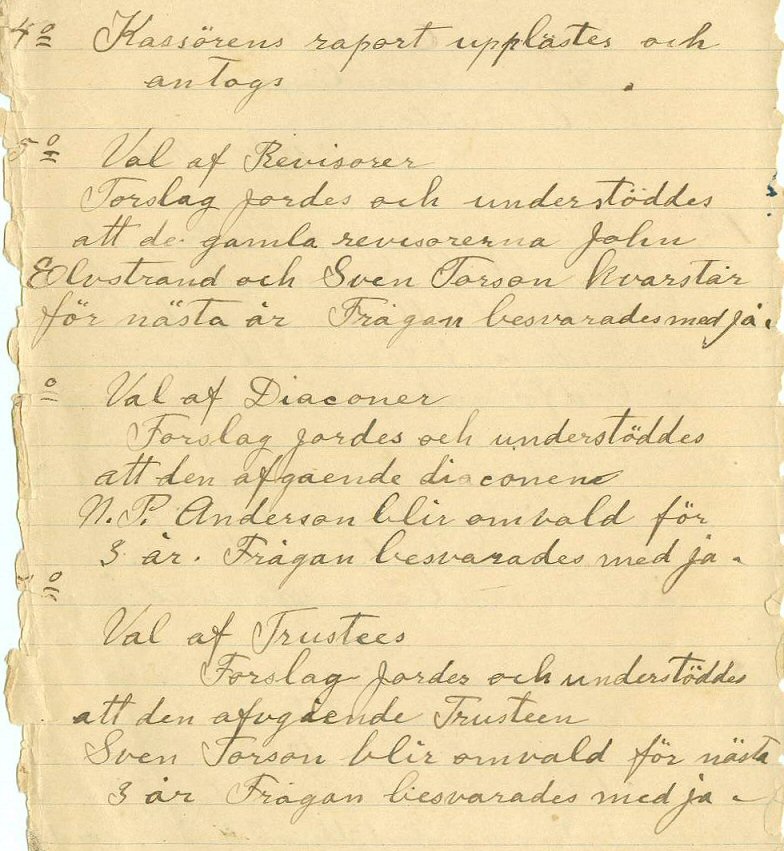 4o Kassörens raport upplästes och
antogs
5o Val af Revisorer
Forslag jordes och understöddes
att de gamla revisorerna John
Elvstrand och Sven Torson kvarstår
för nästa år Frågan besvarades med ja.
o Val af Diaconer
Forslag jordes och understöddes
att den afgående diaconen
N. P. Anderson blir omvald för
3 år. Frågan besvarades med ja.
o
Val af Trustees
Forslag jordes och understöddes
att den afvgående Trusteen
Sven Torson blir omvald för nästa
3 år Frågan besvarades med ja.